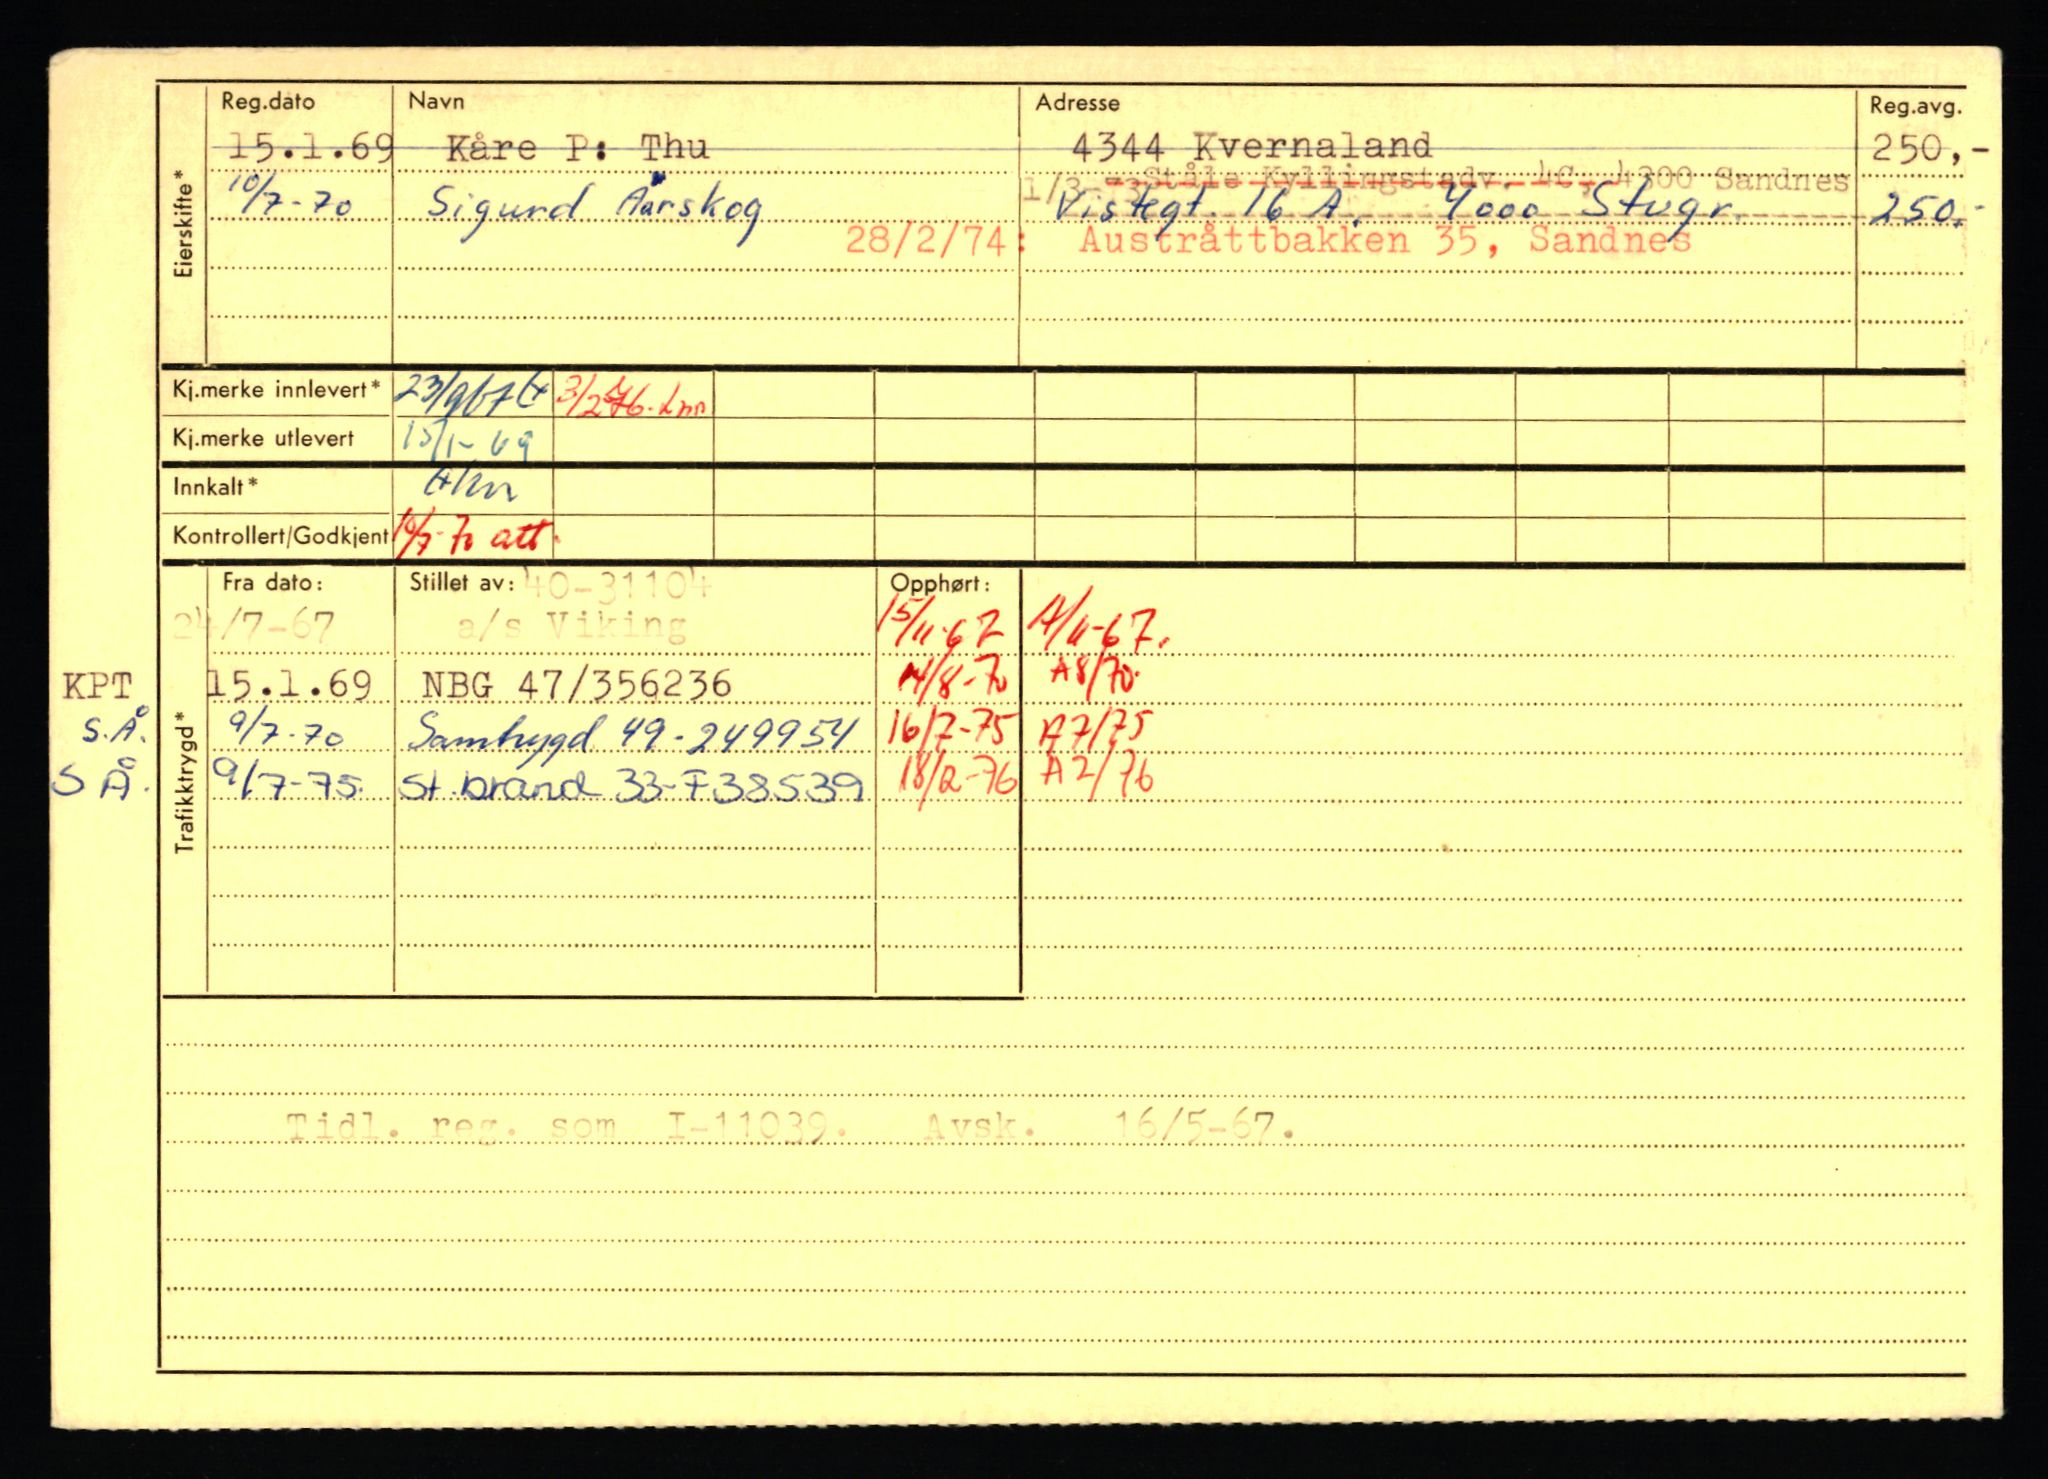 Reg.dato Navn Adresse Reg.avg.
15.1.69 Kåre P: Thu 4344 Kvernaland 250,-
1/3 - 73 Ståle Kyllingstadv. 4C, 4300 Sandnes
10/7-70 Sigurd Åarskog Vistegt. 16 A. 4000 Stvgr. 250.-
28/2/74: Austråttbakken 35, Sandnes
Eierskifte*
Kj.merke innlevert* 23/967 3/2 76.
Kj.merke utlevert 15/1-69
Innkalt*
Kontrollert/Godkjent 10/7-70 att.
Fra dato: Stillet av: 40-31104 Opphørt:
24/7-67 a/s Viking 15/11-67 A/11-67.
KPT 15.1.69 NBG 47/356236 14/8-70 A8/70.
S.Å. 9/7-70 Samtrygd 49-249954 16/7-75 A7/75
S Å. 9/7-75. St.brand 33-F38539 18/2-76 A2/76
Trafikktrygd*
Tidl. reg. som I-11039. Avsk. 16/5-67.